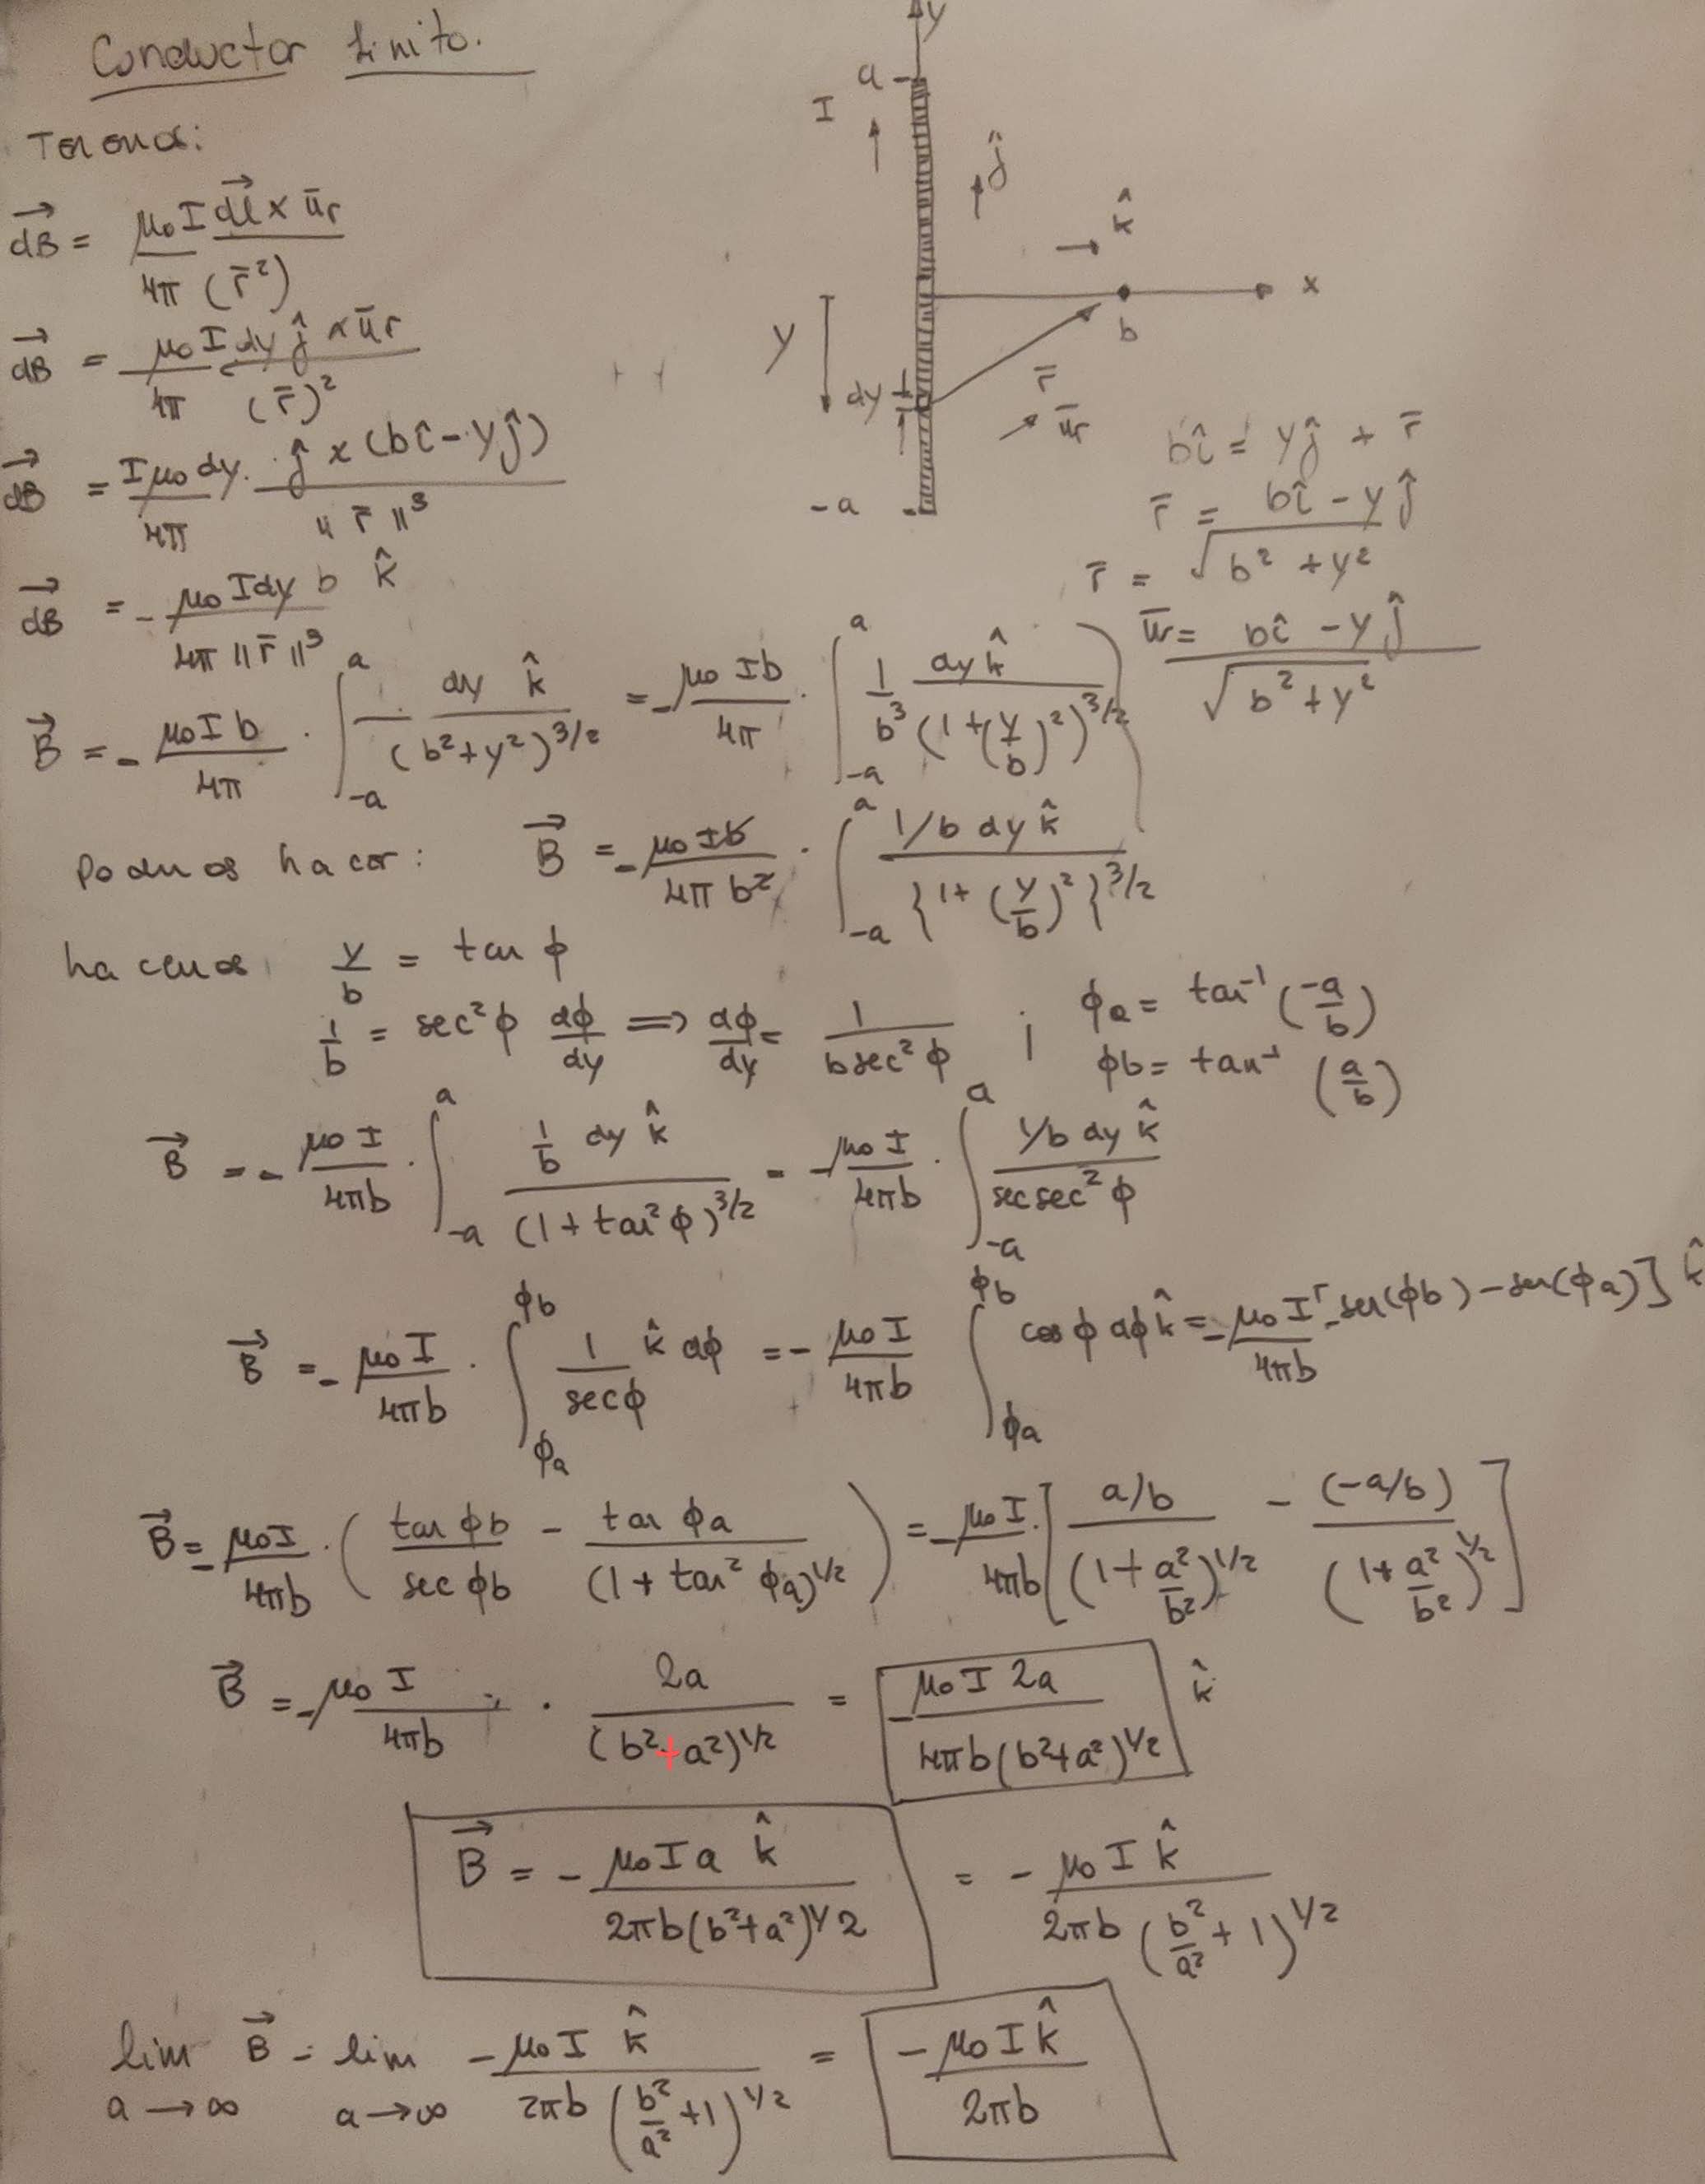 Conductor finito.
Tenemos:
y
a
I ↑
ĵ
k̂
x
b
y
dy
r̄
ūr
-a
bî = yĵ + r̄
r̄ = bî - yĵ
r̄ = √(b² + y²)
ūr = (bî - yĵ) / √(b² + y²)
dB⃗ = μ₀ I dl⃗ × ūr / 4π (r̄²)
dB⃗ = μ₀ I dy ĵ × ūr / 4π (r̄)²
dB⃗ = Iμ₀ dy / 4π · ĵ × (bî - yĵ) / ||r̄||³
dB⃗ = - μ₀ I dy b k̂ / 4π ||r̄||³
B⃗ = - μ₀ I b / 4π · ∫₋ₐᵃ dy k̂ / (b² + y²)^3/2 = - μ₀ I b / 4π · ∫₋ₐᵃ 1/b³ dy k̂ / (1 + (y/b)²)^3/2
Podemos hacer: B⃗ = - μ₀ I b / 4π b² · ∫₋ₐᵃ 1/b dy k̂ / {1 + (y/b)²}^3/2
hacemos y/b = tan ϕ
1/b = sec² ϕ dϕ/dy ⟹ dϕ/dy = 1 / b sec² ϕ ; ϕa = tan⁻¹ (-a/b)
ϕb = tan⁻¹ (a/b)
B⃗ = - μ₀ I / 4πb · ∫₋ₐᵃ 1/b dy k̂ / (1 + tan² ϕ)^3/2 = - μ₀ I / 4πb · ∫₋ₐᵃ 1/b dy k̂ / sec sec² ϕ
B⃗ = - μ₀ I / 4πb · ∫ϕa^ϕb 1/secϕ k̂ dϕ = - μ₀ I / 4πb ∫ϕa^ϕb cos ϕ dϕ k̂ = - μ₀ I / 4πb [sen(ϕb) - sen(ϕa)] k̂
B⃗ = - μ₀ I / 4πb · (tan ϕb / sec ϕb - tan ϕa / (1 + tan² ϕa)^1/2) = - μ₀ I / 4πb · [a/b / (1 + a²/b²)^1/2 - (-a/b) / (1 + a²/b²)^1/2]
B⃗ = - μ₀ I / 4πb · 2a / (b² + a²)^1/2 = - μ₀ I 2a / 4πb (b² + a²)^1/2 k̂
B⃗ = - μ₀ I a k̂ / 2πb (b² + a²)^1/2 = - μ₀ I k̂ / 2πb (b²/a² + 1)^1/2
lim a→∞ B⃗ = lim a→∞ - μ₀ I k̂ / 2πb (b²/a² + 1)^1/2 = - μ₀ I k̂ / 2πb